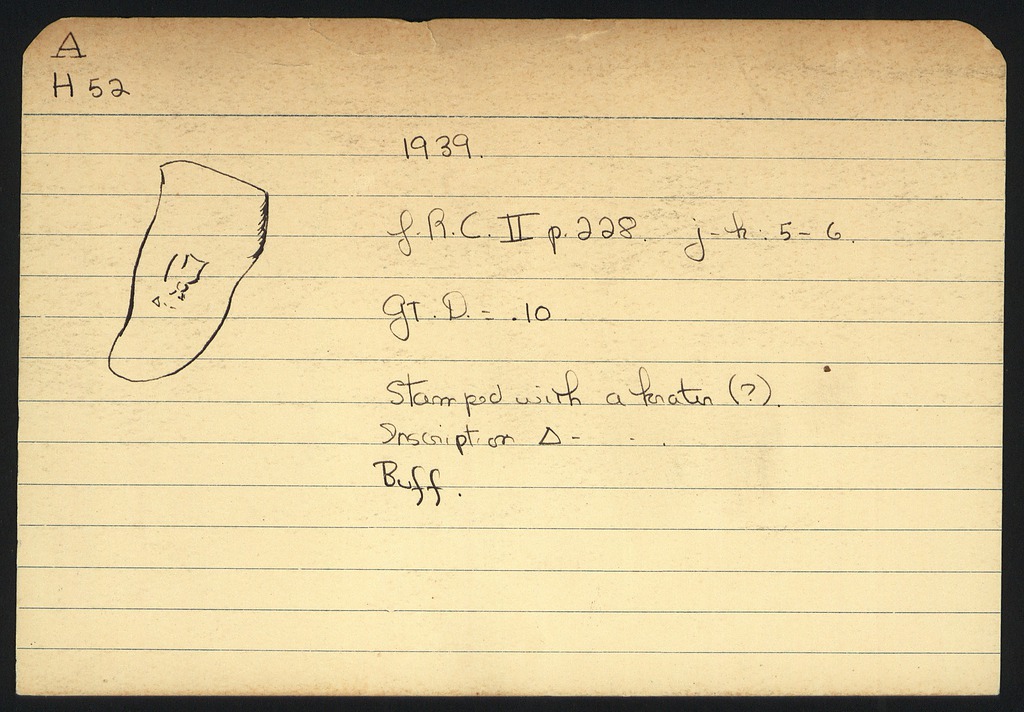 A
H 52
1939.
J.R.C. II p. 228. j-k: 5-6.
GT. D. = .10
Stamped with a krater (?).
Inscription Δ - . .
Buff.